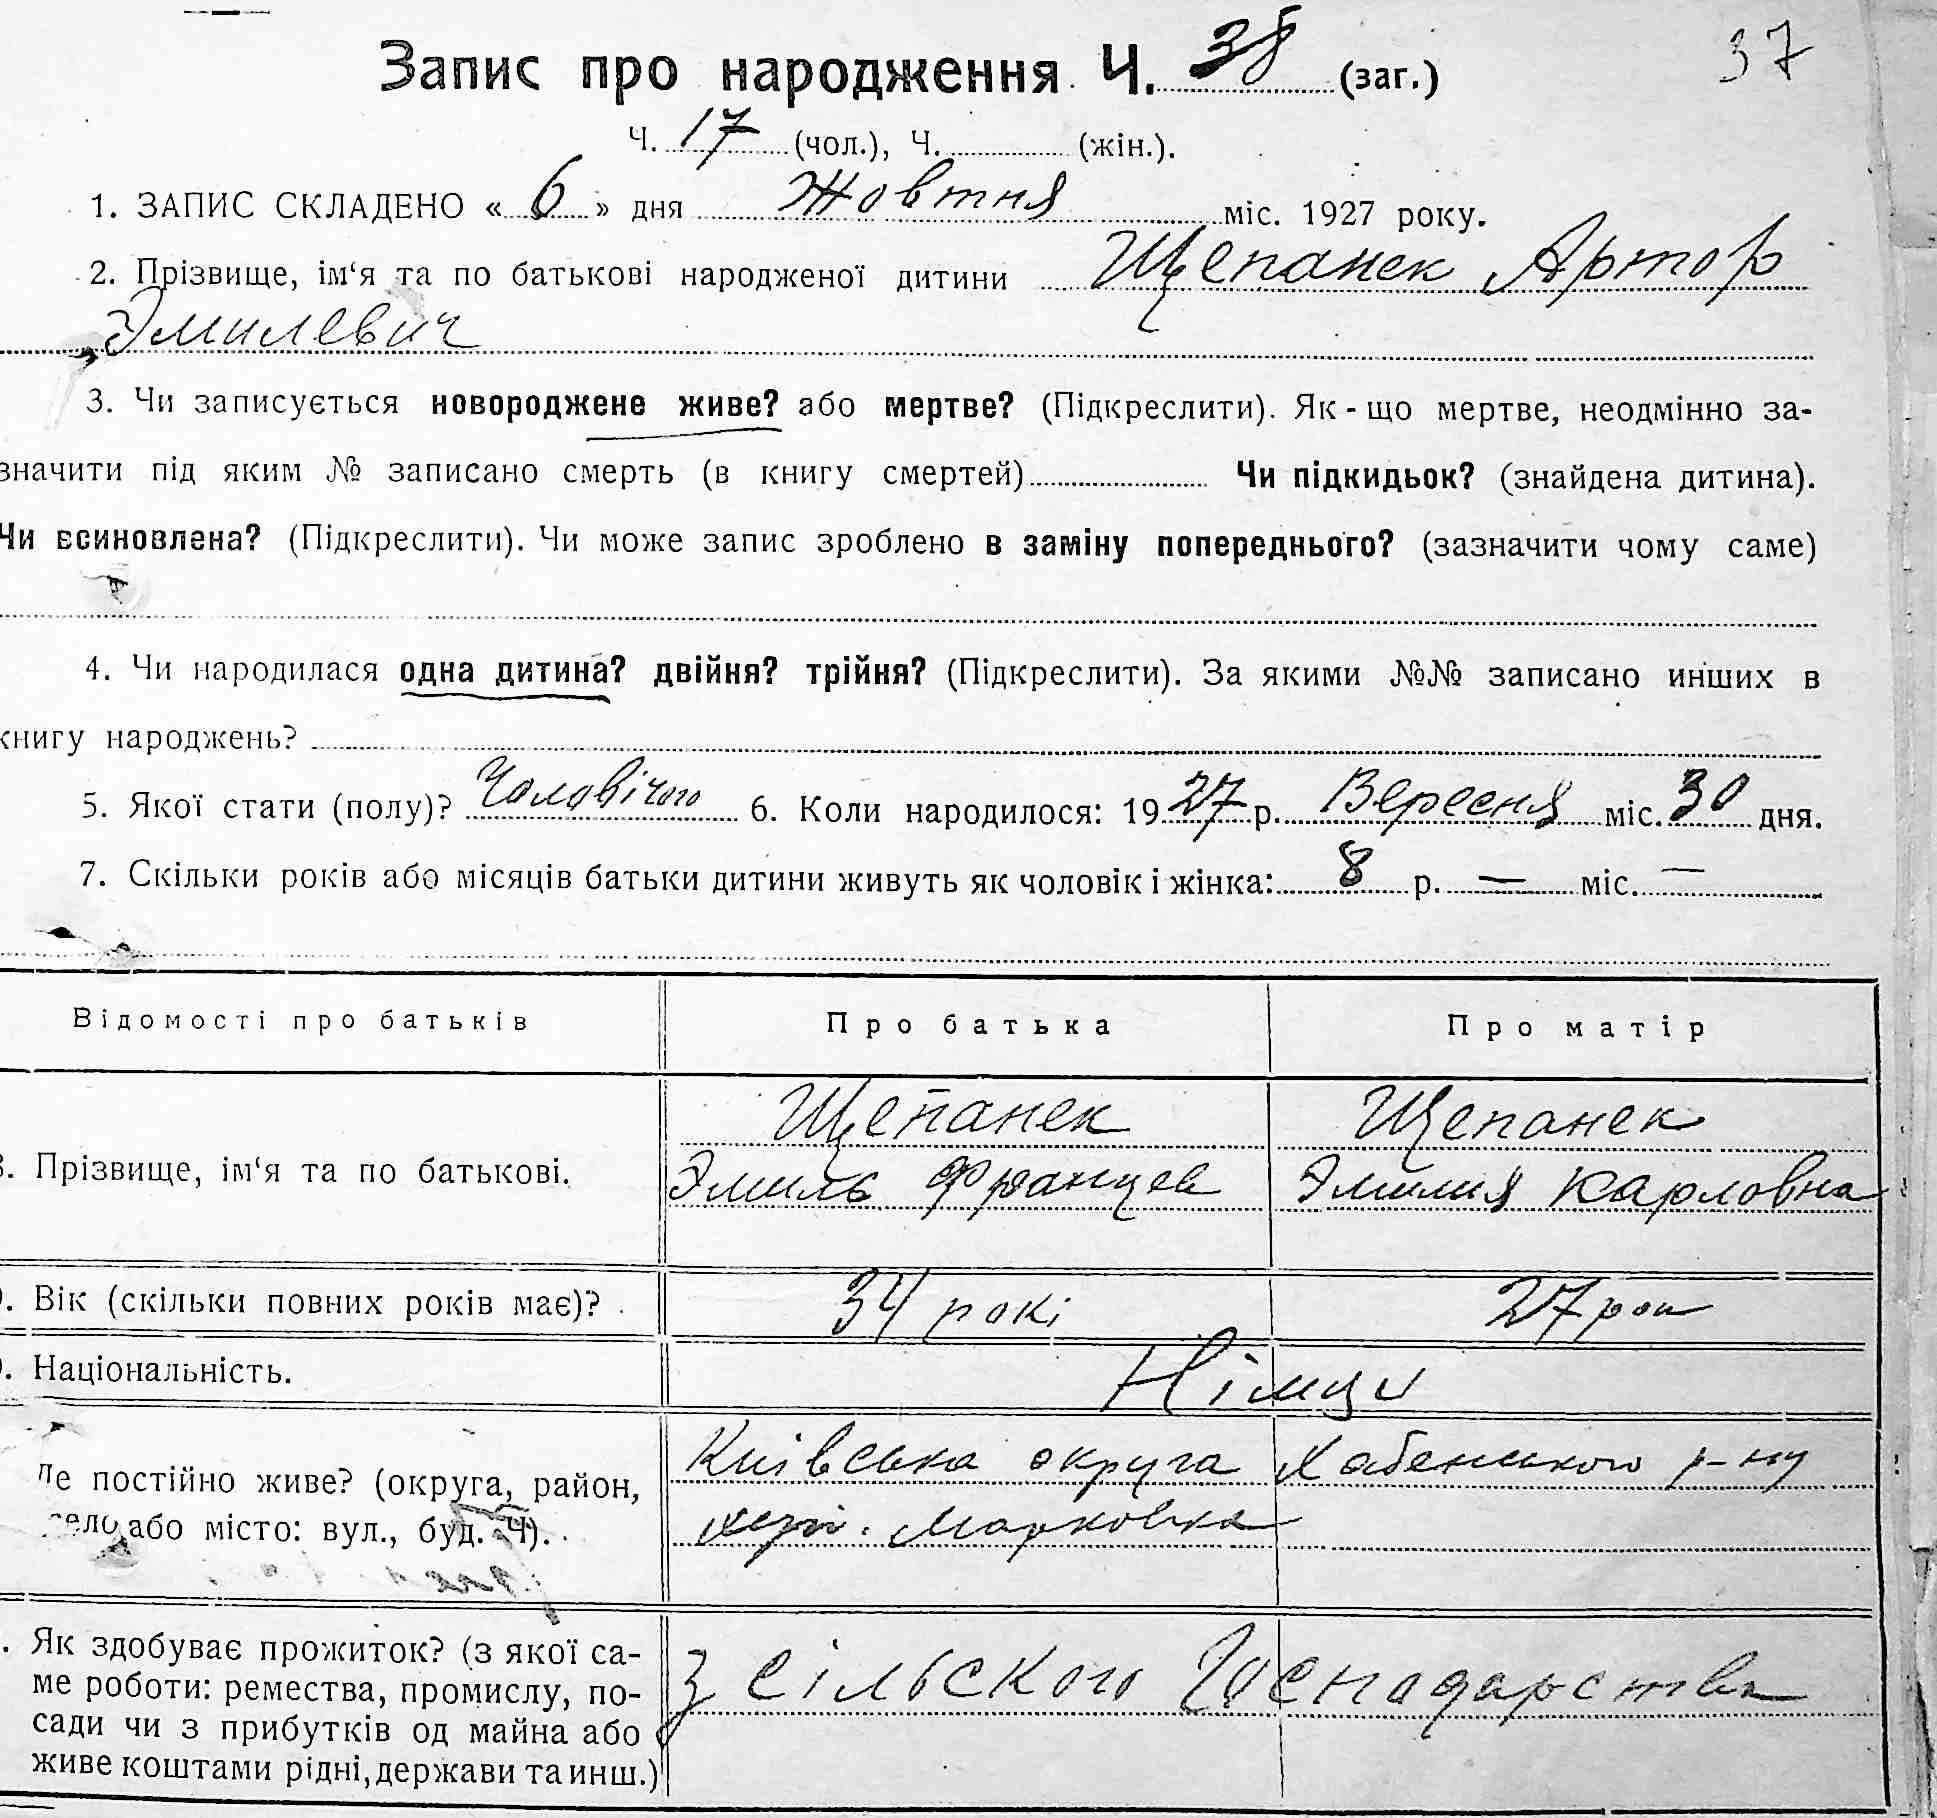 Запис про народження Ч. 38 (заг.) 37
Ч. 17 (чол.), Ч. (жін.).
1. ЗАПИС СКЛАДЕНО « 6 » дня Жовтня міс. 1927 року.
2. Прізвище, ім‘я та по батькові народженої дитини Щепанек Артор
Эмилевич
3. Чи записується новороджене живе? або мертве? (Підкреслити). Як-що мертве, неодмінно за-
значити під яким № записано смерть (в книгу смертей) Чи підкидьок? (знайдена дитина).
Чи всиновлена? (Підкреслити). Чи може запис зроблено в заміну попереднього? (зазначити чому саме)
4. Чи народилася одна дитина? двійня? трійня? (Підкреслити). За якими №№ записано инших в
книгу народжень?
5. Якої стати (полу)? Чоловічого 6. Коли народилося: 1927 р. Вересня міс. 30 дня.
7. Скільки років або місяців батьки дитини живуть як чоловік і жінка: 8 р. — міс. —
Відомості про батьків Про батька Про матір
8. Прізвище, ім‘я та по батькові. Щепанек Щепанек
Эмиль Францев Эмилия Карловна
. Вік (скільки повних років має)? 34 рокі 27 рок
. Національність. Німци
Де постійно живе? (округа, район, Київська округа Хабенського р-ну
село або місто: вул., буд. Ч). Марковка
. Як здобуває прожиток? (з якої са- З сільского Господарства
ме роботи: ремества, промислу, по-
сади чи з прибутків од майна або
живе коштами рідні, держави та инш.)